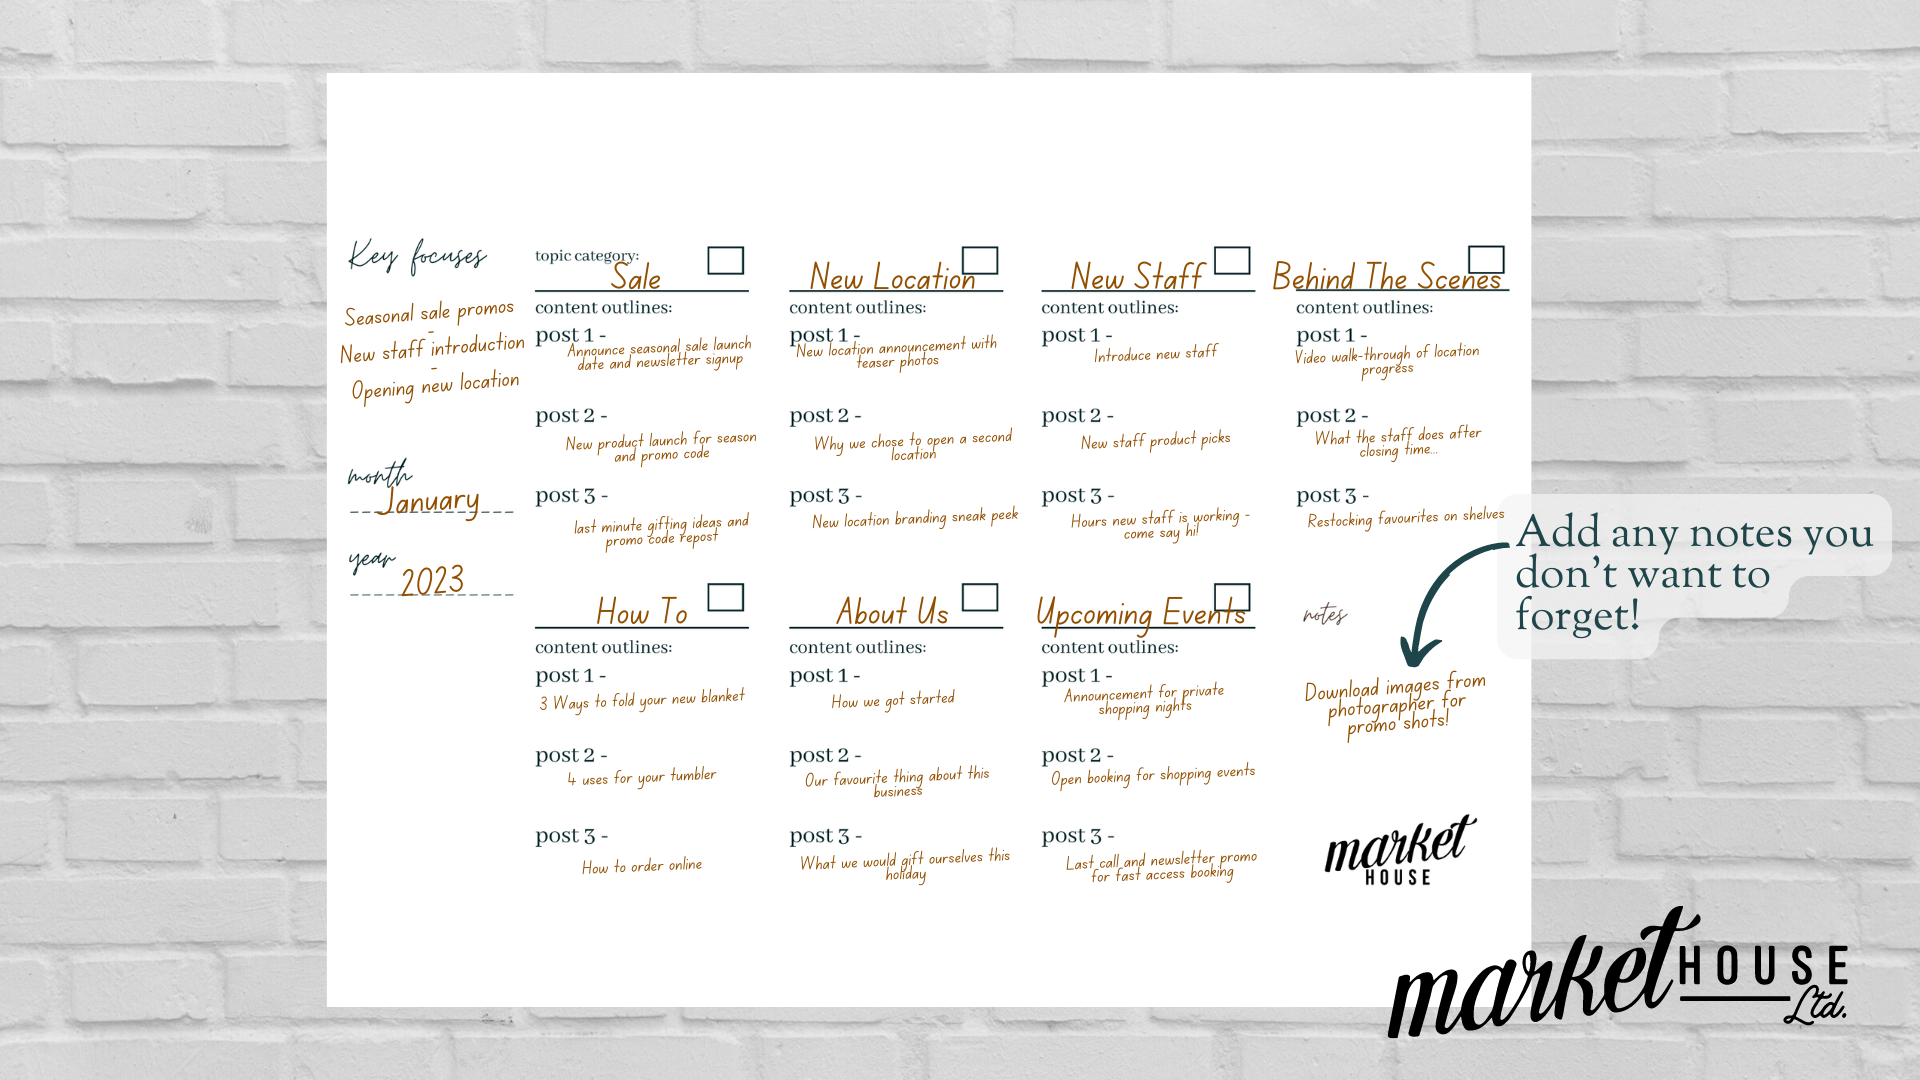 Key focuses
Seasonal sale promos
-
New staff introduction
-
Opening new location
month
January
year
2023
topic category:
Sale
content outlines:
post 1 -
Announce seasonal sale launch
date and newsletter signup
post 2 -
New product launch for season
and promo code
post 3 -
last minute gifting ideas and
promo code repost
New Location
content outlines:
post 1 -
New location announcement with
teaser photos
post 2 -
Why we chose to open a second
location
post 3 -
New location branding sneak peek
New Staff
content outlines:
post 1 -
Introduce new staff
post 2 -
New staff product picks
post 3 -
Hours new staff is working -
come say hi!
Behind The Scenes
content outlines:
post 1 -
Video walk-through of location
progress
post 2 -
What the staff does after
closing time...
post 3 -
Restocking favourites on shelves
How To
content outlines:
post 1 -
3 Ways to fold your new blanket
post 2 -
4 uses for your tumbler
post 3 -
How to order online
About Us
content outlines:
post 1 -
How we got started
post 2 -
Our favourite thing about this
business
post 3 -
What we would gift ourselves this
holiday
Upcoming Events
content outlines:
post 1 -
Announcement for private
shopping nights
post 2 -
Open booking for shopping events
post 3 -
Last call and newsletter promo
for fast access booking
notes
Download images from
photographer for
promo shots!
Add any notes you
don't want to
forget!
market
HOUSE
market HOUSE
Ltd.